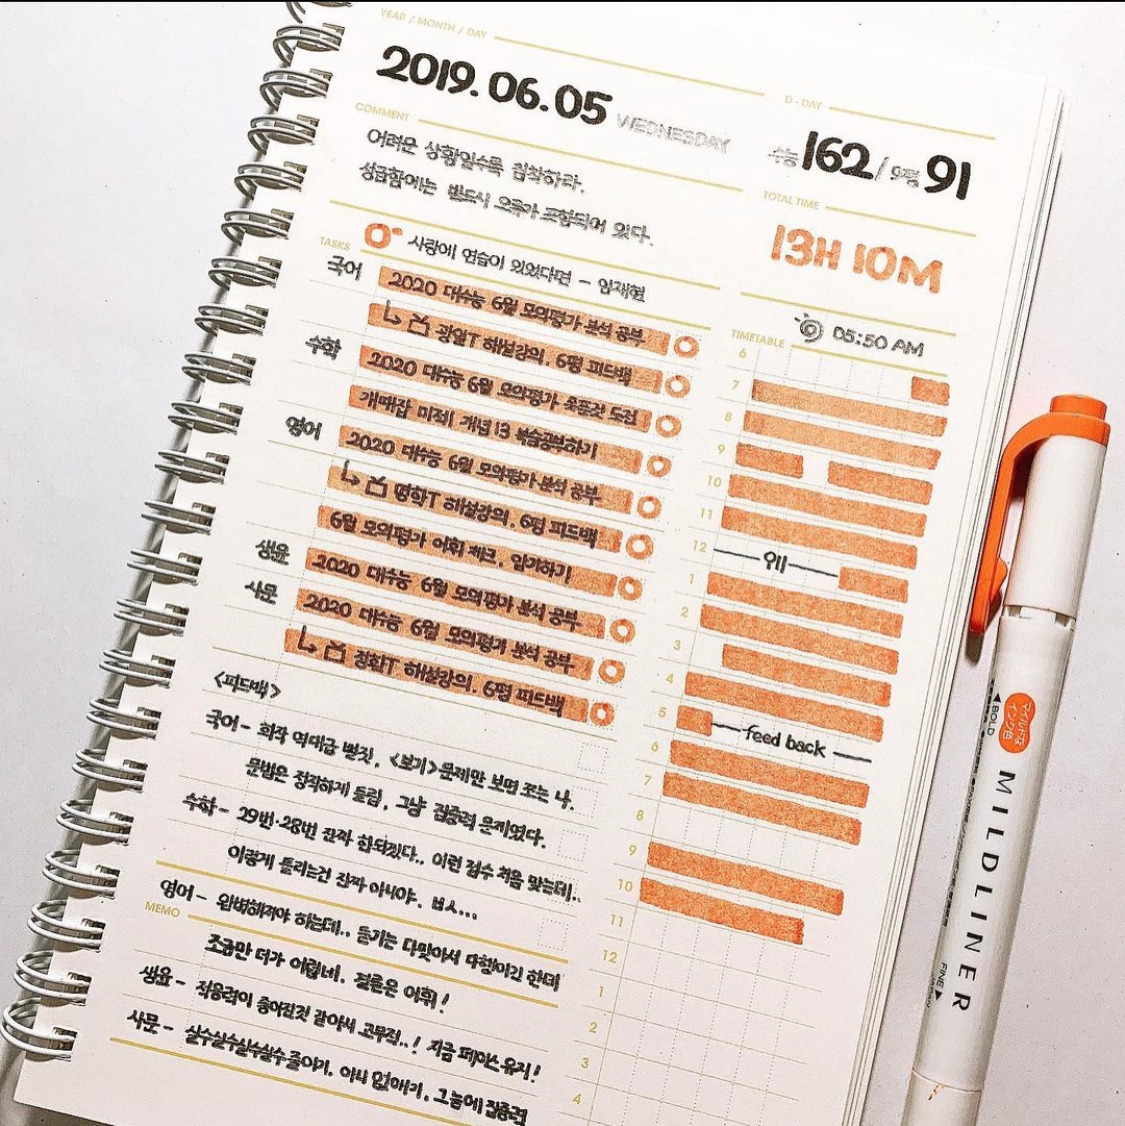 YEAR / MONTH / DAY
2019. 06. 05 WEDNESDAY
D - DAY
수능 162 / 9평 91
COMMENT
어려운 상황일수록 침착하라.
성급함에는 반드시 오류가 포함되어 있다.
TOTAL TIME
13H 10M
사랑에 연습이 있었다면 - 임재현
TASKS
국어
2020 대수능 6월 모의평가 분석 공부
광일T 해설강의. 6평 피드백
수학
2020 대수능 6월 모의평가 못푼것 도전
개때잡 미적1 개념 13 복습공부하기
영어
2020 대수능 6월 모의평가 분석 공부
명학T 해설강의. 6평 피드백
6월 모의평가 어휘 체크. 암기하기
생윤
2020 대수능 6월 모의평가 분석 공부
사문
2020 대수능 6월 모의평가 분석 공부
해설강의. 6평 피드백
<피드백>
국어 - 화작 역대급 뻘짓. <보기> 문제만 보면 쪼는 나.
문법은 정확하게 틀림. 그냥 집중력 문제였다.
수학 - 29번·28번 진짜 안되겠다.. 이런 점수 처음 맞는데..
이렇게 틀리는건 진짜 아니야. ...
영어 - 완벽해져야 하는데.. 듣기는 다맞아서 다행이긴 한데
MEMO
조금만 더가 어렵네. 결론은 어휘!
생윤 - 적응력이 좋아진것 같아서 고무적..! 지금 페이스 유지!
사문 - 실수실수실수실수 줄이기. 아니 없애기. 그놈에 집중력
TIMETABLE
05:50 AM
6
7
8
9
10
11
12
1
2
3
4
5
feed back
6
7
8
9
10
11
12
1
2
3
4
BOLD
マイルドな
インク色
MILDLINER
FINE